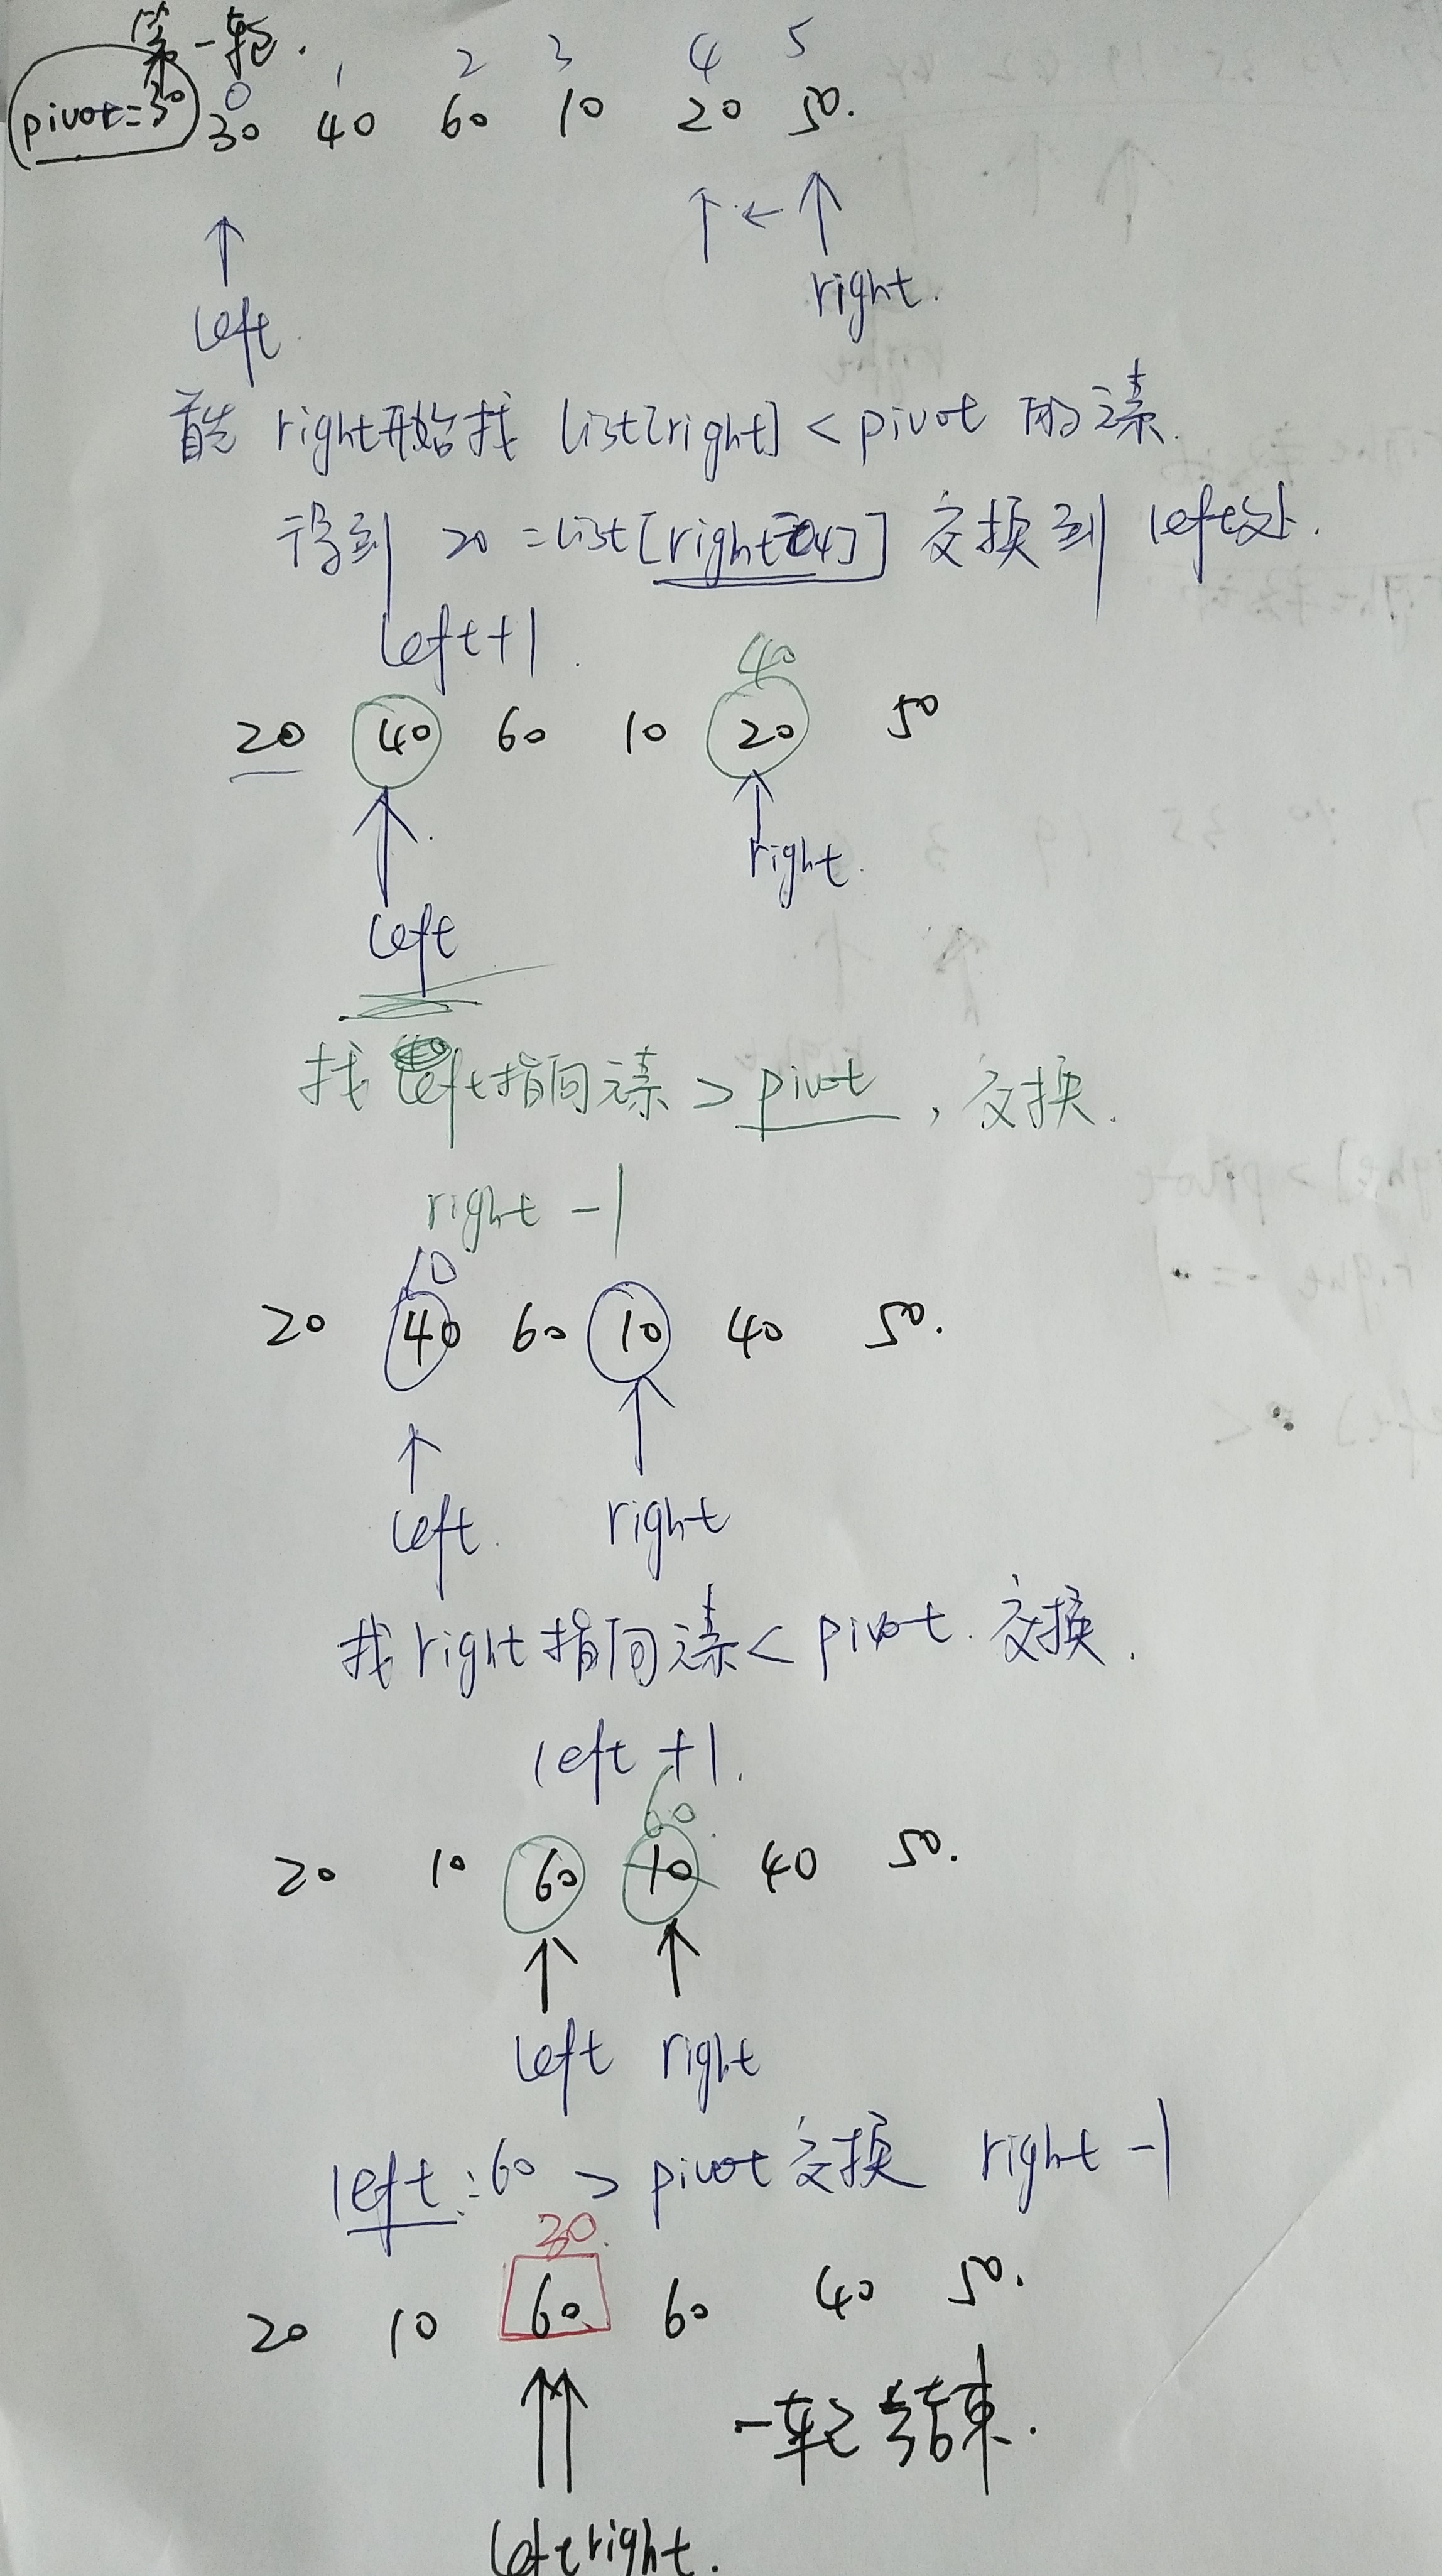 第一轮.
0 1 2 3 4 5
pivot=30 30 40 60 10 20 50.
left. right.
首先 right开始找 list[right] < pivot 的元素.
得到 20 = list[right=4] 交换到 left处.
left+1.
40
20 40 60 10 20 50
left right.
找left指向元素 > pivot, 交换.
right -1
10
20 40 60 10 40 50.
left. right
找right指向元素< pivot. 交换.
left +1.
60
20 10 60 10 40 50.
left right
left:60 > pivot 交换 right -1
30.
20 10 60 60 40 50.
一轮结束.
left right.